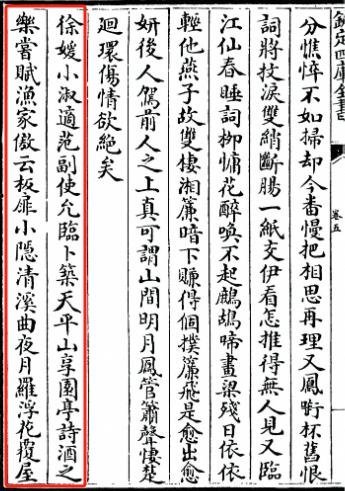 欽定四庫全書
卷五
分憔悴不如掃却今番慢把相思再理又鳳啣杯舊恨
詞將挍淚雙綃斷腸一紙交伊看怎推得無人見又臨
江仙春睡詞柳慵花醉喚不起鷓鴣啼畫梁殘日依依
輕他燕子故雙棲湘簾暗下賺得個撲簾飛是愈出愈
妍後人駕前人之上真可謂山間明月鳳管簫聲悽楚
迴環傷情欲絕矣
徐媛小淑適范副使允臨卜築天平山享園亭詩酒之
樂嘗賦漁家傲云板扉小隱清溪曲夜月羅浮花覆屋